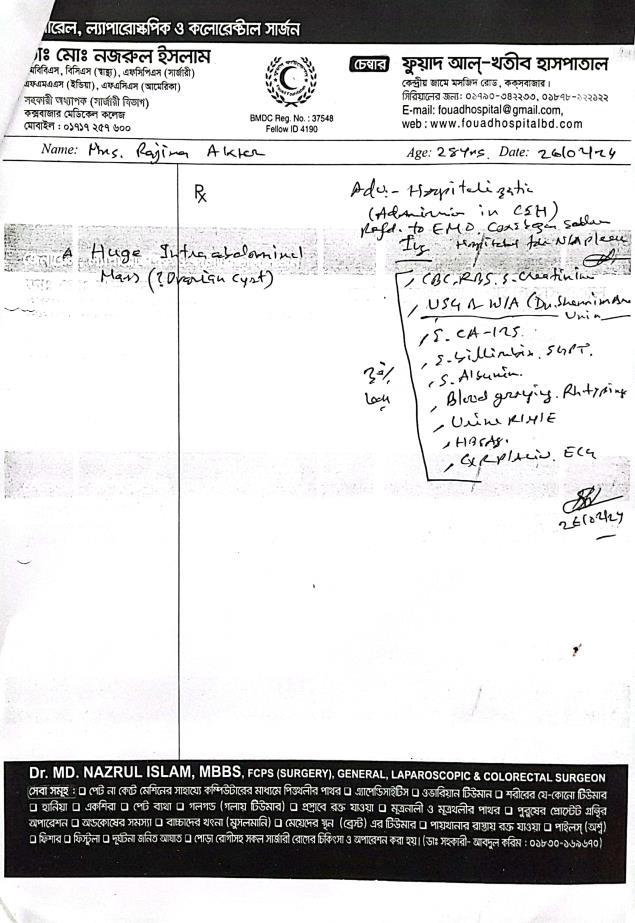 রেল, ল্যাপারোস্কপিক ও কলোরেক্টাল সার্জন
ডাঃ মোঃ নজরুল ইসলাম
এমবিবিএস, বিসিএস (স্বাস্থ্য), এফসিপিএস (সার্জারী)
এফএমএএস (ইন্ডিয়া), এফএসিএস (আমেরিকা)
সহকারী অধ্যাপক (সার্জারী বিভাগ)
কক্সবাজার মেডিকেল কলেজ
মোবাইল : ০১৭১৭ ২৫৭ ৬০০
BMDC Reg. No. : 37548
Fellow ID 4190
চেম্বার ফুয়াদ আল্-খতীব হাসপাতাল
কেন্দ্রীয় জামে মসজিদ রোড, কক্সবাজার।
সিরিয়ালের জন্য: ০১৭৯০-৩৪২২৩৩, ০১৮৭৮-
E-mail: fouadhospital@gmail.com,
web : www.fouadhospitalbd.com
Name: Mrs. Rajina Akter Age: 28yrs. Date: 26/02/24
Rx
Adv:- Hospitalization
(Admission in CSH)
Refd. to EMO.
Hospital for N/A please
A Huge Intraabdominal
Mass (? Ovarian Cyst)
CBC, RBS, S. Creatinine
USG of W/A
S. CA-125.
S. Billirubin. SGPT.
S. Albumin.
Blood grouping. Rh typing
Urine R/M/E
HBsAg.
CXR P/A view. ECG
26/02/24
Dr. MD. NAZRUL ISLAM, MBBS, FCPS (SURGERY), GENERAL, LAPAROSCOPIC & COLORECTAL SURGEON
সেবা সমূহ : ❑ পেট না কেটে মেশিনের সাহায্যে কম্পিউটারের মাধ্যমে পিত্তথলীর পাথর ❑ এ্যাপেন্ডিসাইটিস ❑ ওভারিয়ান টিউমান ❑ শরীরের যে-কোনো টিউমার
❑ হার্নিয়া ❑ একশিরা ❑ পেট ব্যথা ❑ গলগন্ড (গলায় টিউমার) ❑ প্রস্রাবে রক্ত যাওয়া ❑ মূত্রনালী ও মূত্রথলীর পাথর ❑ পুরুষের প্রোস্টেট গ্রন্থির
অপারেশন ❑ অন্ডকোষের সমস্যা ❑ বাচ্চাদের খৎনা (মুসলমানি) ❑ মেয়েদের স্তন (ব্রেস্ট) এর টিউমার ❑ পায়খানার রাস্তায় রক্ত যাওয়া ❑ পাইলস্ (অর্শ)
❑ ফিশার ❑ ফিস্টুলা ❑ দূর্ঘটনা জনিত আঘাত ❑ পোড়া রোগীসহ সকল সার্জারী রোগের চিকিৎসা ও অপারেশন করা হয়। (ডাঃ সহকারী- আবদুল করিম : ০১৮৩০-১৬৯৬৭০)